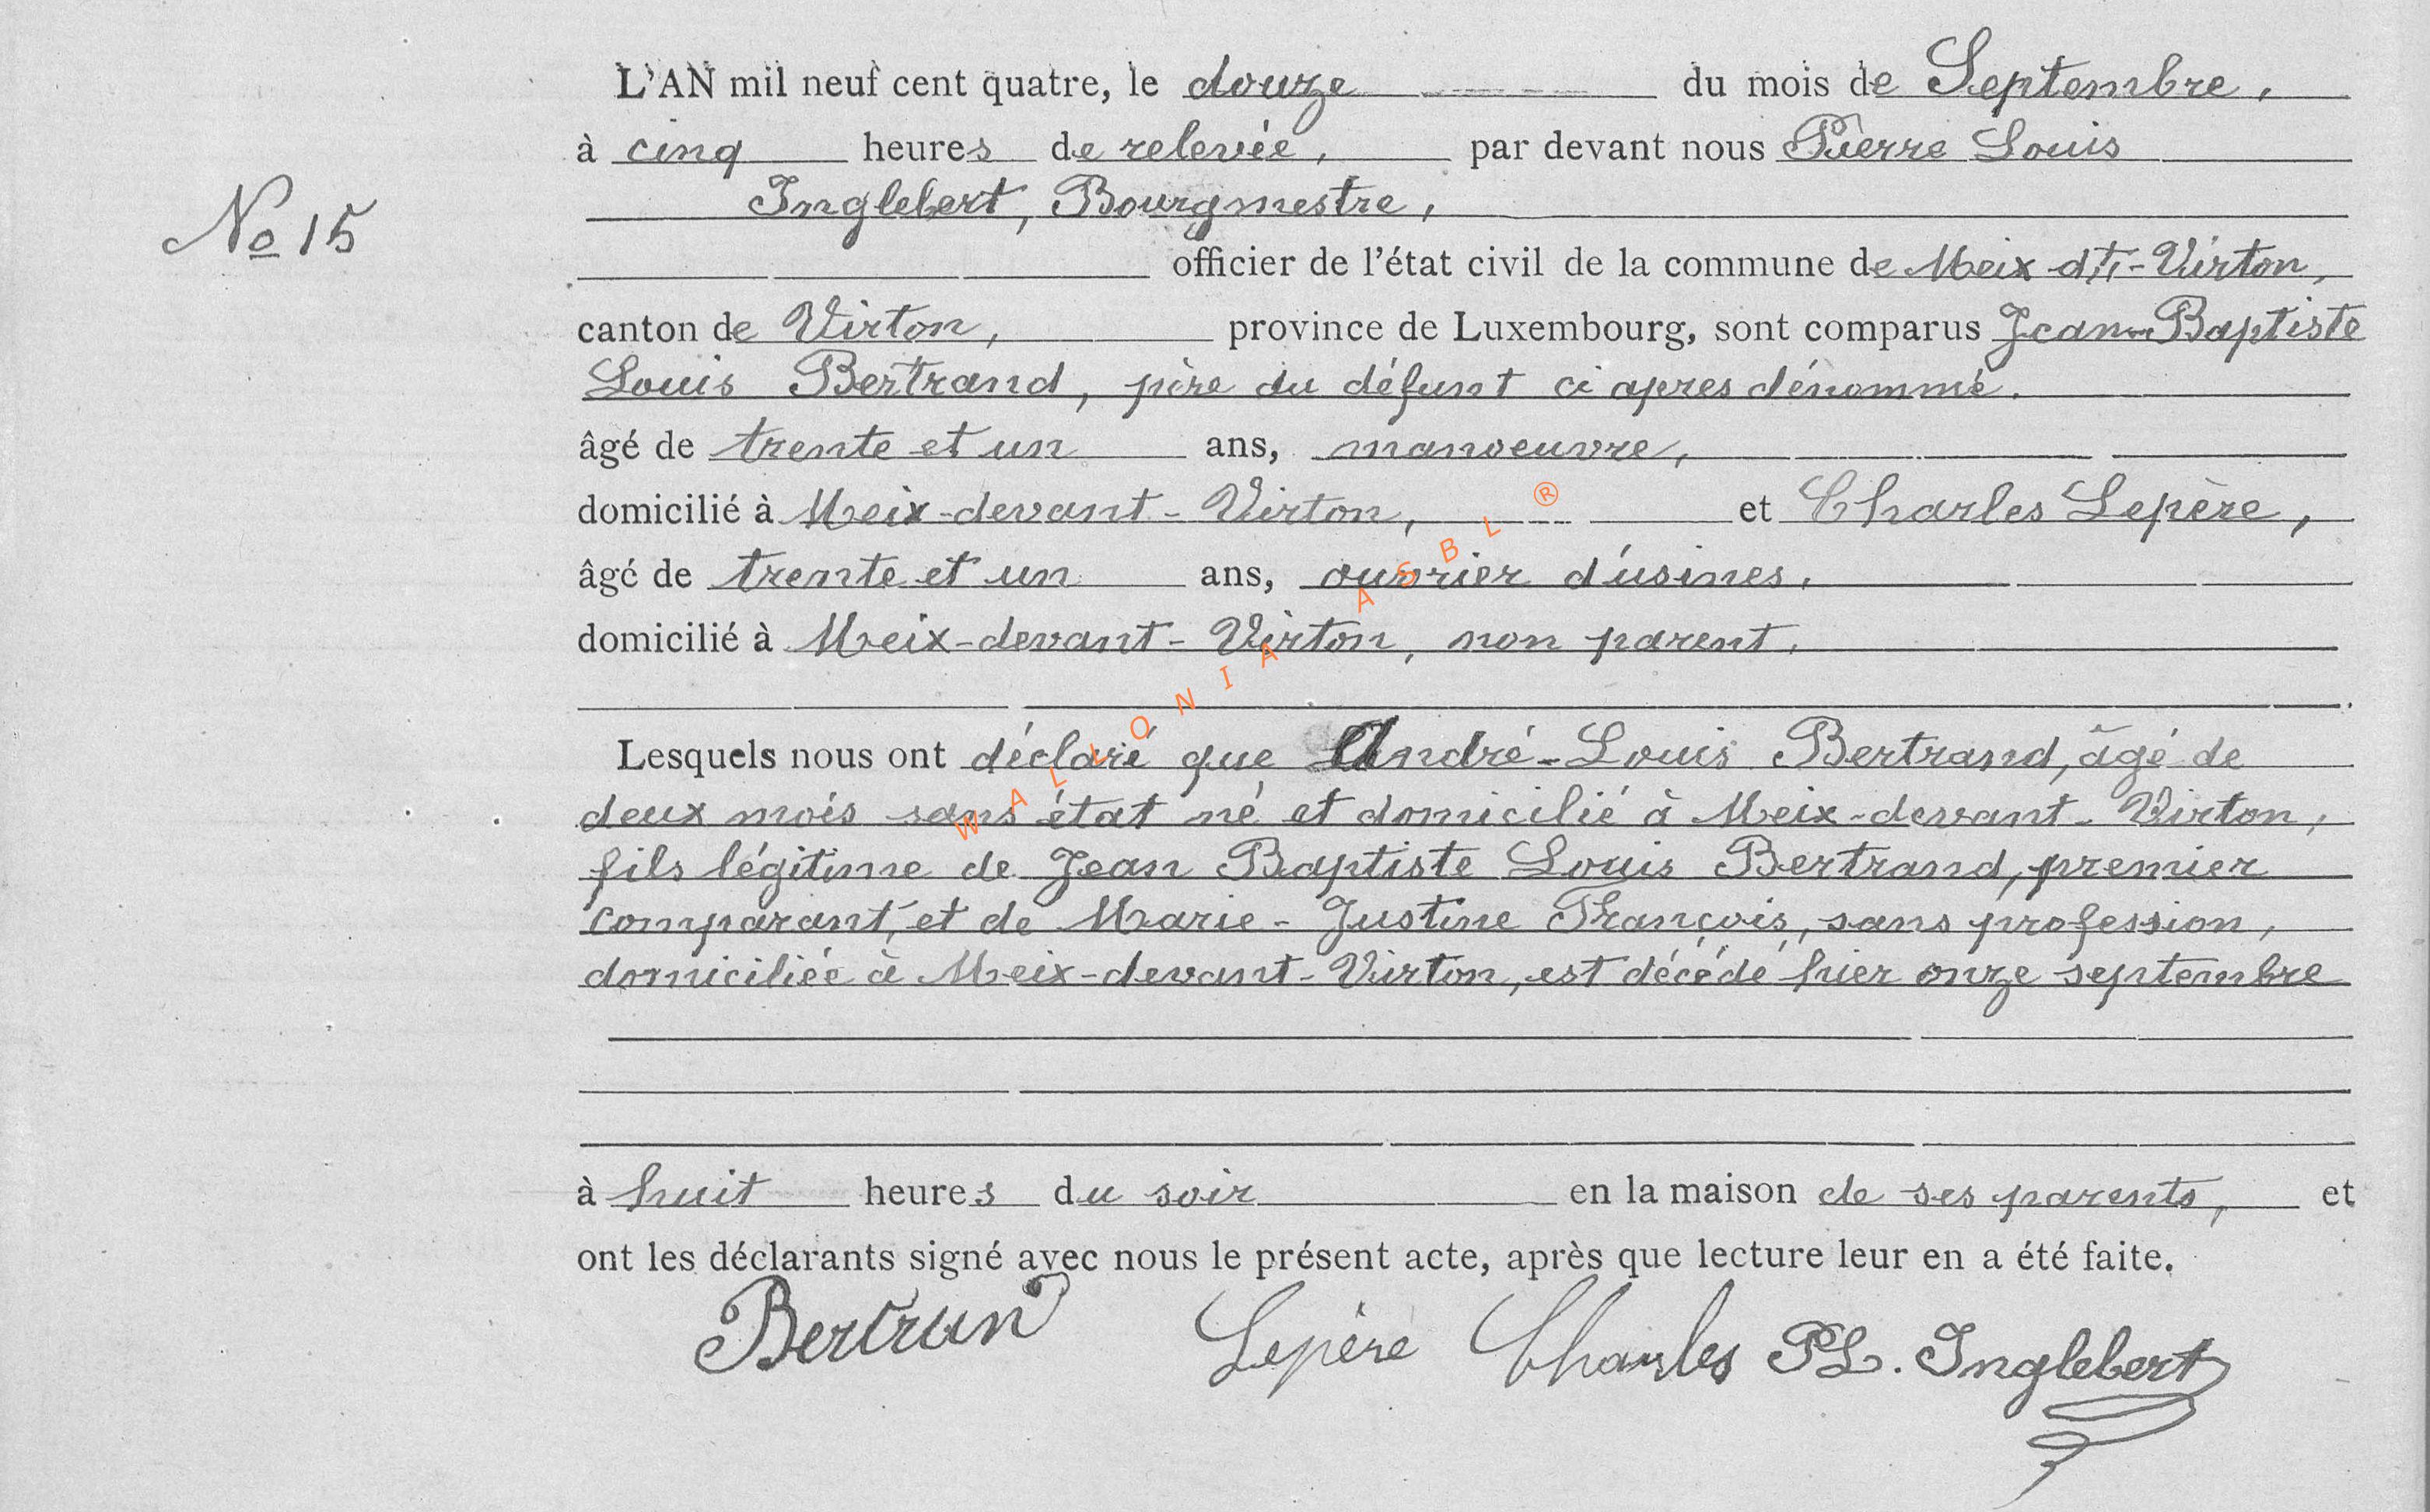 L'AN mil neuf cent quatre, le douze du mois de Septembre,
à cinq heures de relevée, par devant nous Pierre Louis
Inglebert, Bourgmestre,
No 15
officier de l'état civil de la commune de Meix-dt-Virton,
canton de Virton, province de Luxembourg, sont comparus Jean-Baptiste
Louis Bertrand, père du défunt ci apres dénommé.
âgé de trente et un ans, manoeuvre,
domicilié à Meix-devant-Virton, et Charles Lepère,
âgé de trente et un ans, ouvrier d'usines,
domicilié à Meix-devant-Virton, non parent.
Lesquels nous ont déclaré que André-Louis Bertrand, âgé de
deux mois sans état né et domicilié à Meix-devant-Virton,
fils légitime de Jean Baptiste Louis Bertrand, premier
comparant, et de Marie-Justine François, sans profession,
domiciliée à Meix-devant-Virton, est décédé hier onze septembre
à huit heures du soir en la maison de ses parents, et
ont les déclarants signé avec nous le présent acte, après que lecture leur en a été faite.
Bertrand Lepère Charles PL. Inglebert
WALLONIA ASBL ®